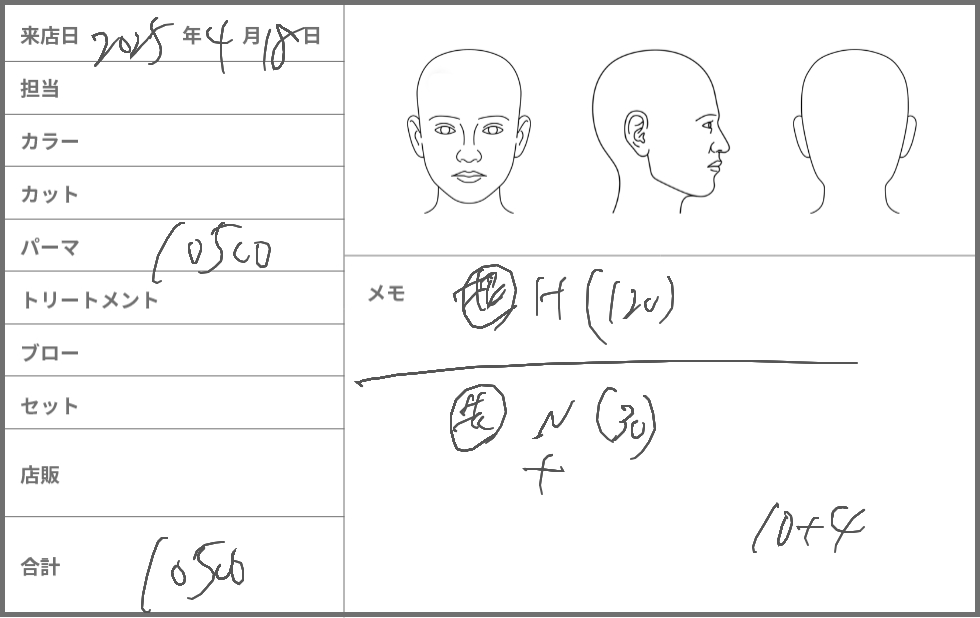 来店日 2025 年 4 月 18 日
担当
カラー
カット
パーマ 10500
トリートメント
ブロー
セット
店販
合計 10500
メモ
H (120)
N (30)
+
10+4